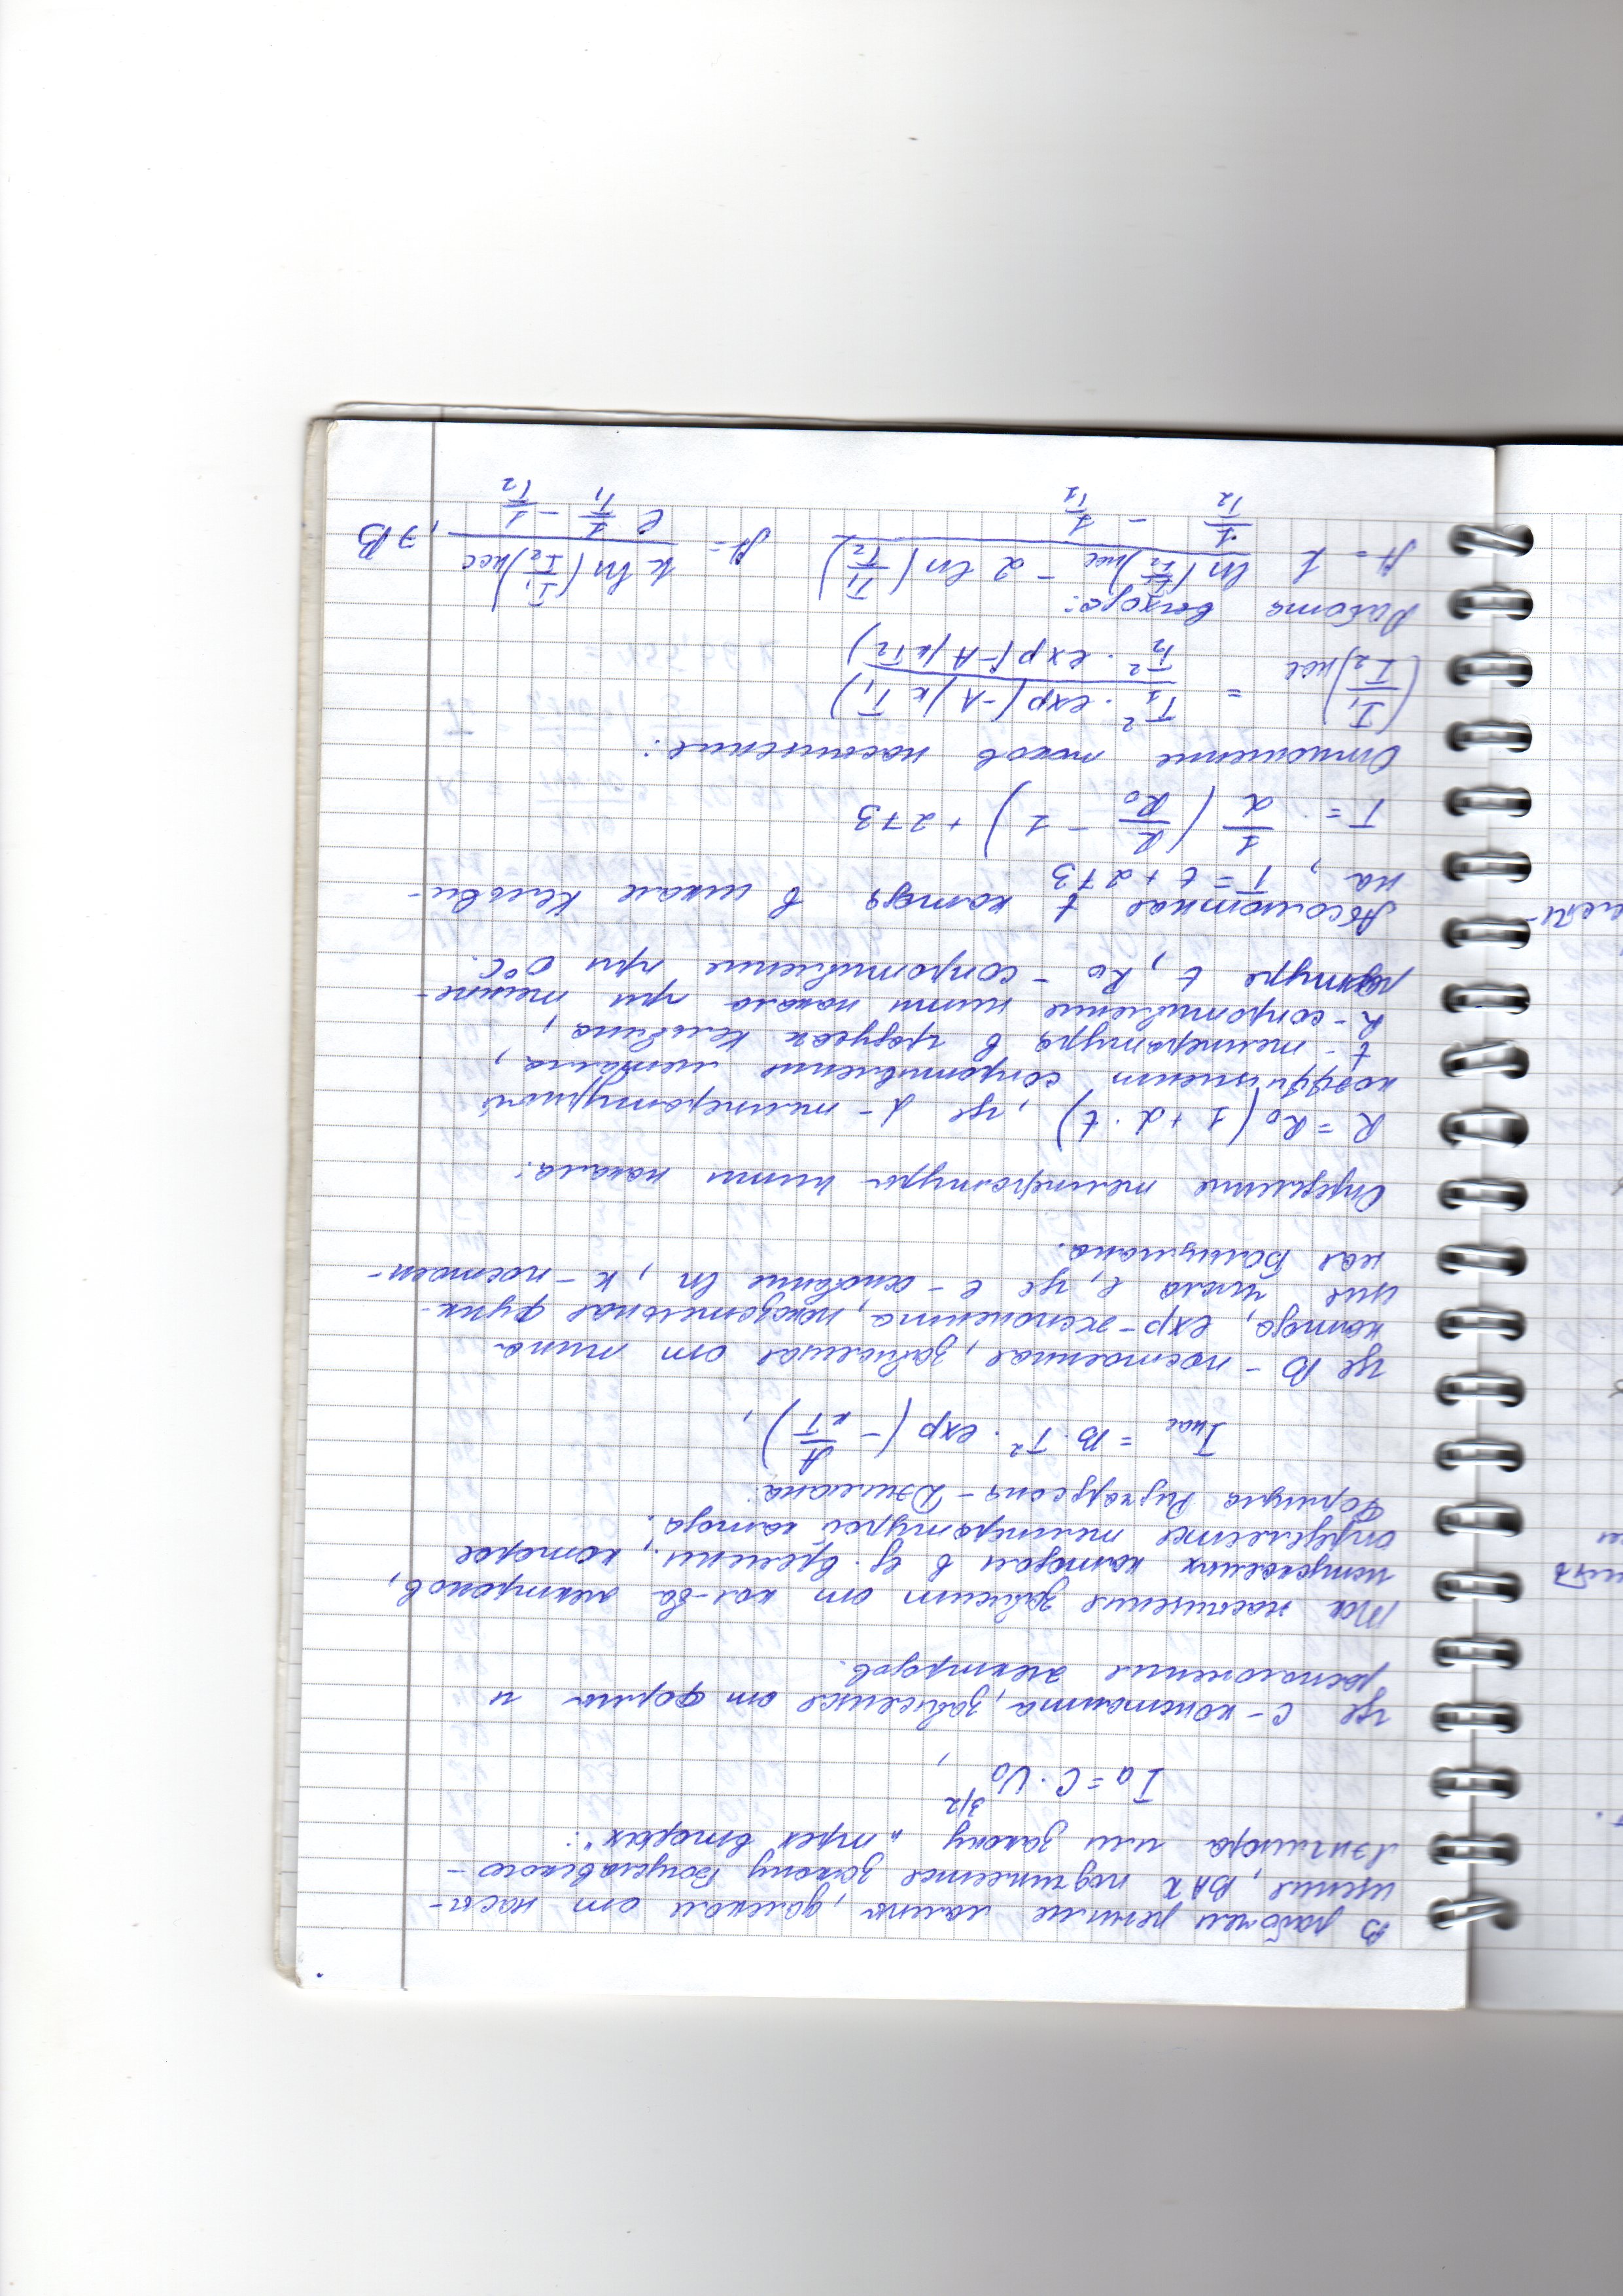 В рабочем режиме лампы, далеком от насы-
щения, ВАХ подчиняется закону Богуславского –
Лэнгмюра или закону „трех вторых“:
Iа = C · Uа^3/2 ,
где C – константа, зависящая от формы и
расположения электродов.
Ток насыщения зависит от кол-ва электронов,
испускаемых катодом в ед. времени., которое
определяется температурой катода.
Формула Ридчардсона – Дэшмана:
Iнас = B · T² · exp (– A/кT) ,
где B – постоянная, зависящая от типа
катода, exp – экспонента, показательная функ-
ция числа e, где e – основание ln, к – постоян-
ная Больцмана.
Определение температуры нити накала:
R = R₀ (1 + α · t) , где α – температурный
коэффициент сопротивления металла,
t – температура в градусах Кельвина,
R – сопротивление нити накала при темпе-
ратуре t, R₀ – сопротивление при 0°C.
Абсолютная t катода в шкале Кельви-
на, T = t + 273
T = 1/α (R/R₀ – 1) + 273
Отношение токов насыщения:
(I₁/I₂)нас = T₁² · exp(-A/к T₁) / T₂² · exp(-A/кT₂)
Работа выхода:
A = k ln(I₁/I₂)нас – 2 ln(T₁/T₂) / 1/T₂ – 1/T₁ A = k ln(I₁/I₂)нас / e 1/T₁ – 1/T₂ , эВ